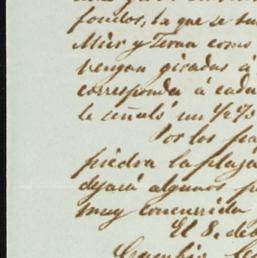 fondos, la que se su
Mier y Teran como
vengan giradas á
corresponda á cada
le señaló un 1/2 %
Por los
piedra la plaza
dejará algunos
muy concurrida
El 8. de